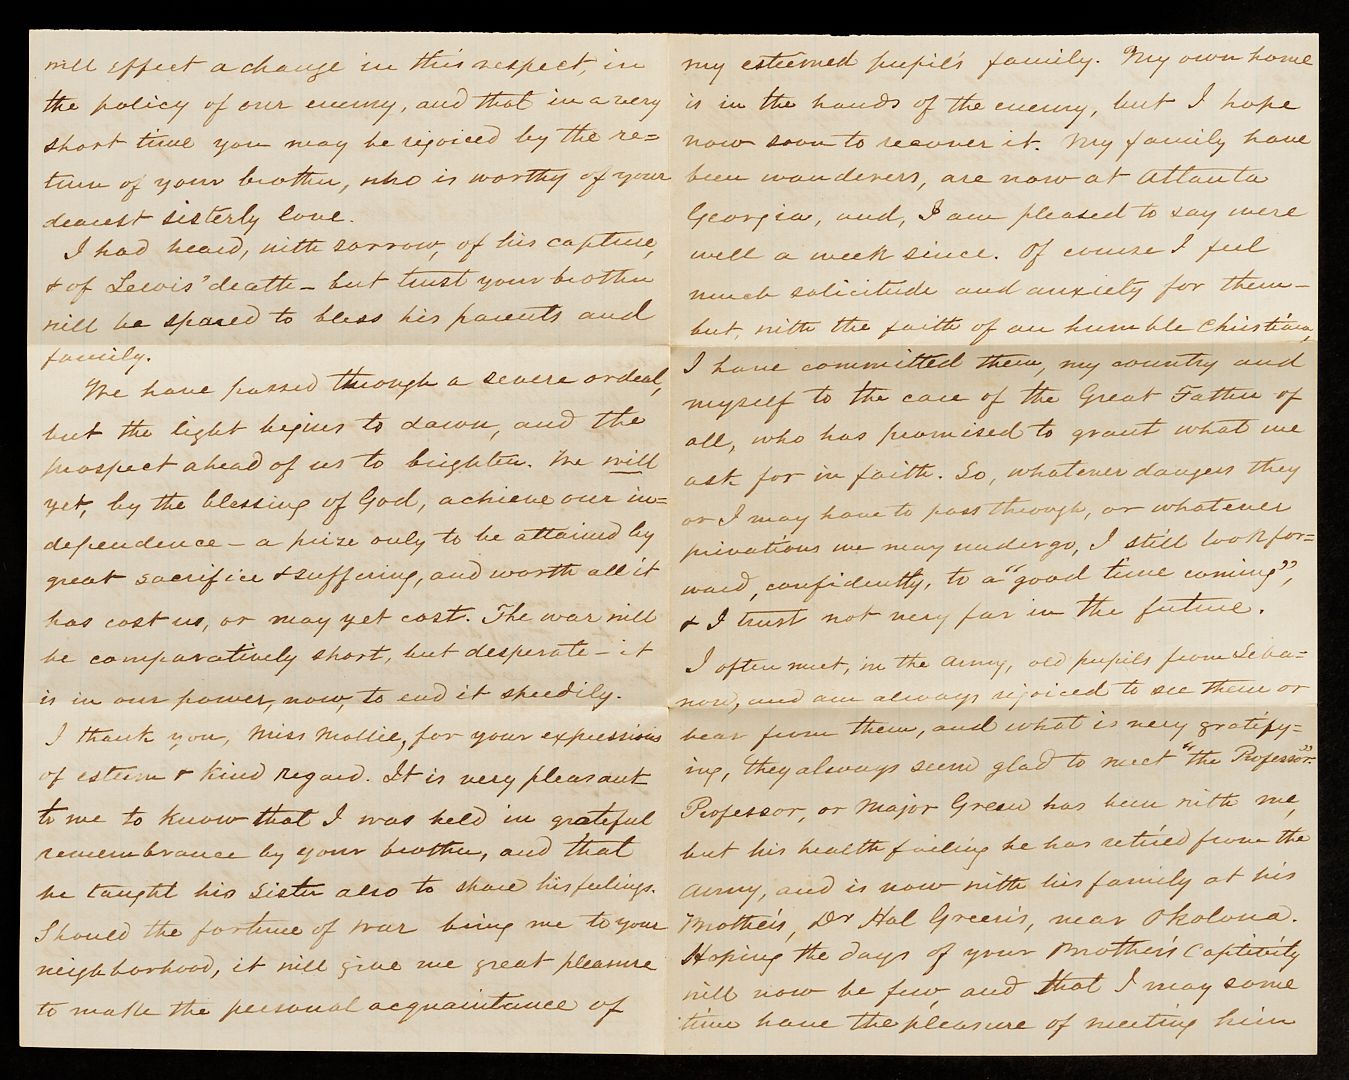 will effect a change in this respect, in
the policy of our enemy, and that in a very
short time you may be rejoiced by the re=
turn of your brother, who is worthy of your
dearest sisterly love.
I had heard, with sorrow, of his capture,
& of Lewis' death – but trust your brother
will be spared to bless his parents and
family.
We have passed through a severe ordeal,
but the light begins to dawn, and the
prospect ahead of us to brighten. We will
yet, by the blessing of God, achieve our in=
dependence – a prize only to be attained by
great sacrifice & suffering, and worth all it
has cost us, or may yet cost. The war will
be comparatively short, but desperate – it
is in our power, now, to end it speedily.
I thank you, Miss Mollie, for your expressions
of esteem & kind regard. It is very pleasant
to me to know that I was held in grateful
remembrance by your brother, and that
he taught his sister also to share his feelings.
Should the fortune of war bring me to your
neighborhood, it will give me great pleasure
to make the personal acquaintance of
my esteemed pupil's family. My own home
is in the hands of the enemy, but I hope
now soon to recover it. My family have
been wanderers, are now at Atlanta
Georgia, and, I am pleased to say were
well a week since. Of course I feel
much solicitude and anxiety for them –
but, with the faith of an humble Christian,
I have committed them, my country and
myself to the care of the Great Father of
all, who has promised to grant what we
ask for in faith. So, whatever dangers they
or I may have to pass through, or whatever
privations we may undergo, I still look for=
ward, confidently, to a "good time coming",
& I trust not very far in the future.
I often meet, in the army, old pupils from Leba=
non, and am always rejoiced to see them or
hear from them, and what is very gratify=
ing, they always seem glad to meet "the Professor."
Professor, or Major Green has been with me,
but his health failing he has retired from the
army, and is now with his family at his
Brother's, Dr Hal Green's, near Okolona.
Hoping the days of your Brother's captivity
will now be few, and that I may some
time have the pleasure of meeting him